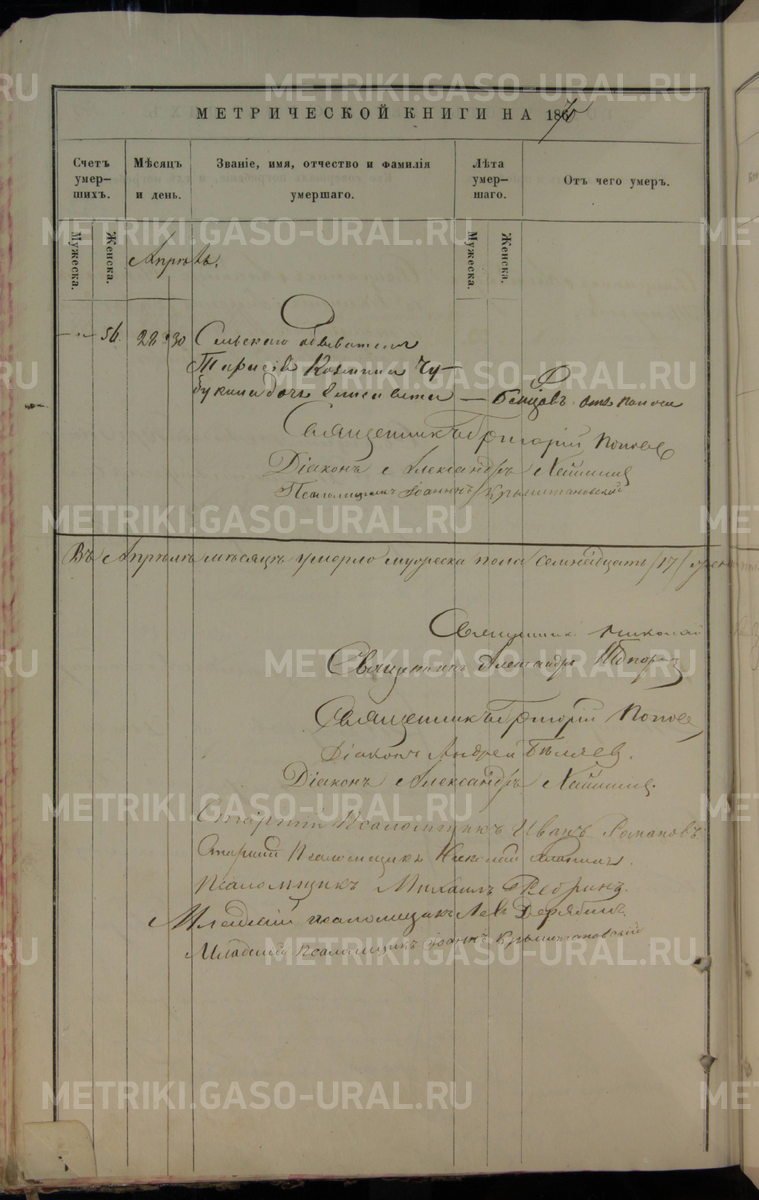 МЕТРИЧЕСКОЙ КНИГИ НА 1870
Счетъ умер-шихъ.
Мѣсяцъ и день.
Званіе, имя, отчество и фамилія умершаго.
Лѣта умер-шаго.
Отъ чего умеръ.
Мужеска.
Женска.
Мужеска.
Женска.
Апрѣль.
56. 28 30 Сельскаго обывателя
Тарасія Козмина Чу-
букина дочь Елисавета — отъ поноса
Священникъ Григорій Поповъ
Діаконъ Александръ
Псаломщикъ Іоаннъ
Въ Апрѣлѣ мѣсяцѣ умерло мужеска пола семнадцать /17/
Священникъ Николай
Священникъ Александръ
Священникъ Григорій Поповъ
Діаконъ Андрей Бѣляев.
Діаконъ Александръ
Старшій Псаломщикъ Иванъ Романовъ
Старшій Псаломщикъ Николай
Псаломщикъ Михаилъ Ребринъ
Младшій псаломщикъ Левъ Дерябинъ
Младшій псаломщикъ Іоаннъ
METRIKI.GASO-URAL.RU